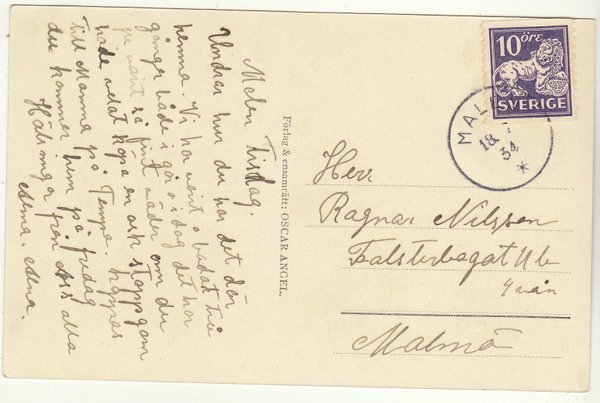 Malen Tisdag.
Undrar hur du har det där
hemma. Vi har varit o badat tre
gånger både i går o i dag det har
ju varit så fint väder om du
hade velat köpa en ask stoppgarn
till Mamma på Tempo. hoppas
du kommer hem på fredag
Hälsningar från oss alla
Alma.
Förlag & ensamrätt: OSCAR ANGEL.
10 ÖRE
SVERIGE
MAL
18
34
Herr
Ragnar Nilsson
Falsterbogat 11 b
Malmö